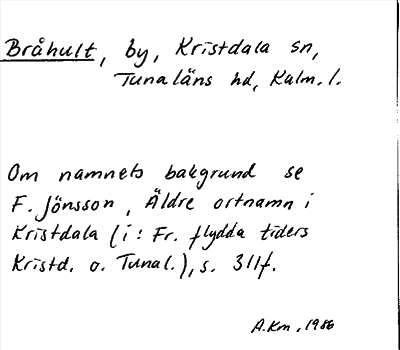 Bråhult, by, Kristdala sn,
Tunaläns hd, Kalm. l.
Om namnets bakgrund se
F. Jönsson, Äldre ortnamn i
Kristdala (i: Fr. flydda tiders
Kristd. o. Tunal.), s. 311f.
A.Km, 1986